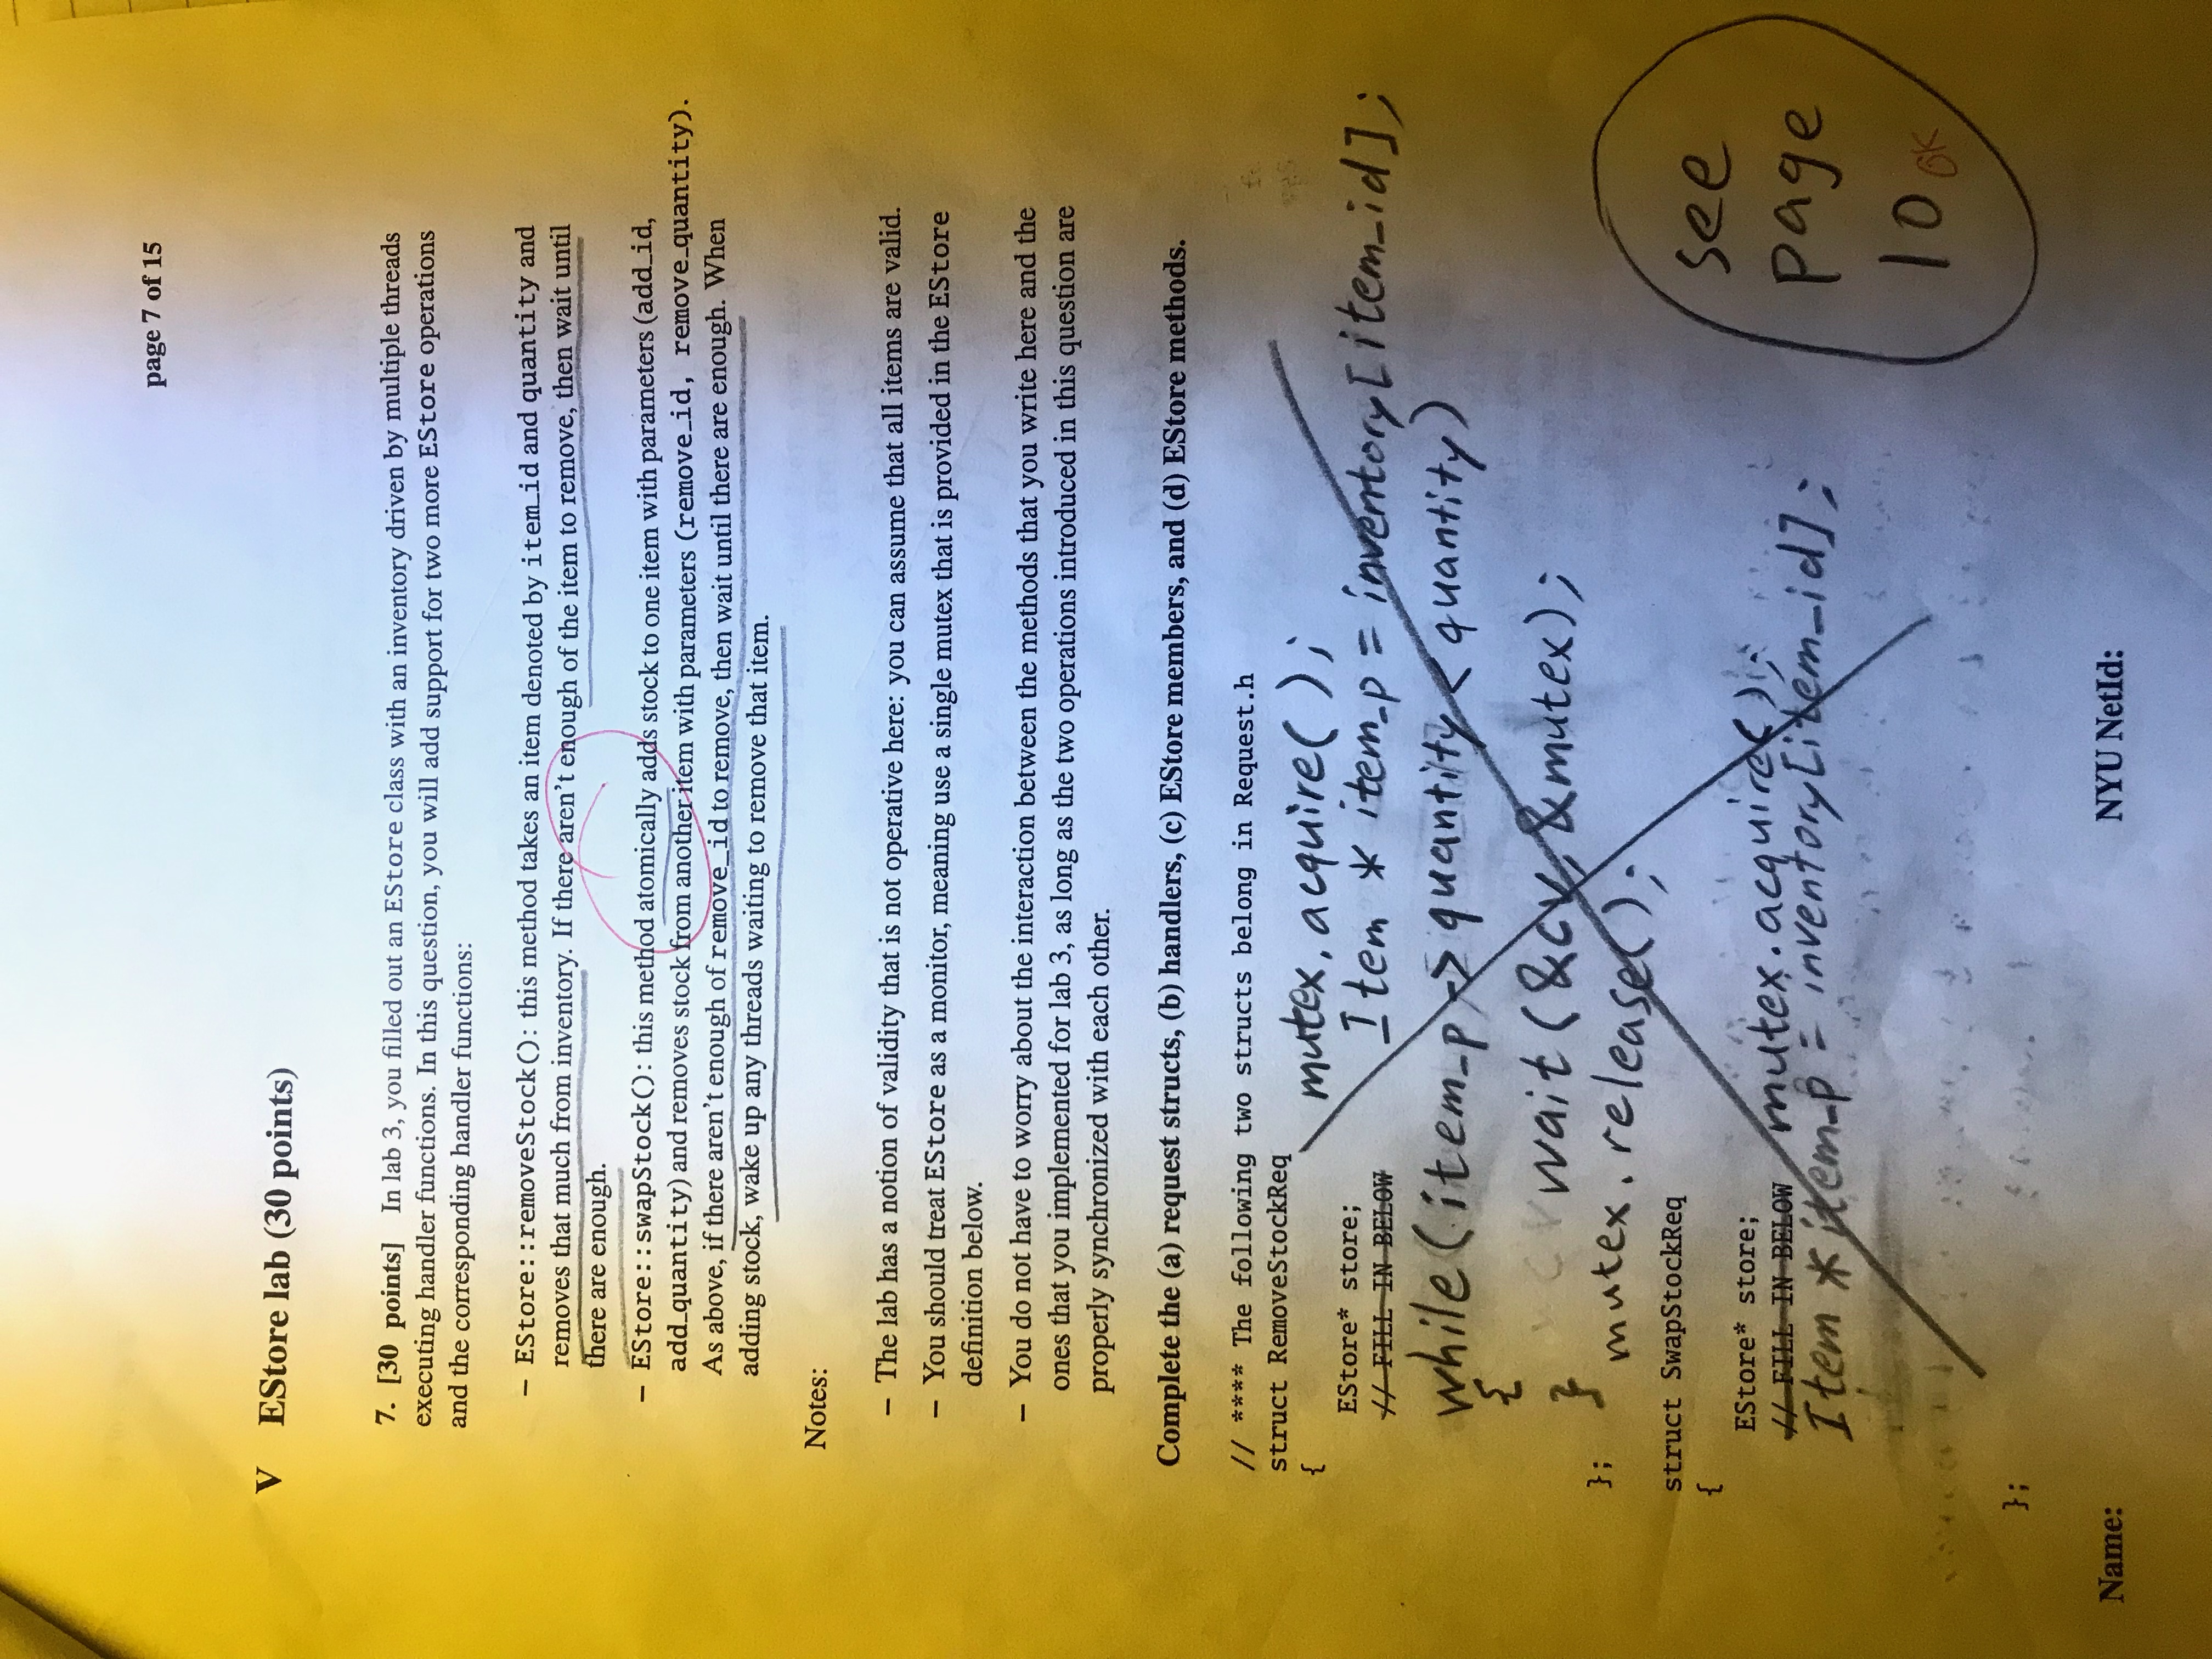 page 7 of 15
V EStore lab (30 points)
7. [30 points] In lab 3, you filled out an EStore class with an inventory driven by multiple threads
executing handler functions. In this question, you will add support for two more EStore operations
and the corresponding handler functions:
– EStore::removeStock(): this method takes an item denoted by item_id and quantity and
removes that much from inventory. If there aren't enough of the item to remove, then wait until
there are enough.
– EStore::swapStock(): this method atomically adds stock to one item with parameters (add_id,
add_quantity) and removes stock from another item with parameters (remove_id, remove_quantity).
As above, if there aren't enough of remove_id to remove, then wait until there are enough. When
adding stock, wake up any threads waiting to remove that item.
Notes:
– The lab has a notion of validity that is not operative here: you can assume that all items are valid.
– You should treat EStore as a monitor, meaning use a single mutex that is provided in the EStore
definition below.
– You do not have to worry about the interaction between the methods that you write here and the
ones that you implemented for lab 3, as long as the two operations introduced in this question are
properly synchronized with each other.
Complete the (a) request structs, (b) handlers, (c) EStore members, and (d) EStore methods.
// **** The following two structs belong in Request.h
struct RemoveStockReq
{ mutex.acquire();
EStore* store;
// FILL IN BELOW Item * item_p = inventory[item_id];
while(item_p->quantity < quantity)
{
wait(&cv, &mutex);
}
};
mutex.release();
struct SwapStockReq
{
EStore* store; mutex.acquire();
// FILL IN BELOW
Item *item_p = inventory[item_id];
};
see
page
10 OK
Name: NYU NetId: